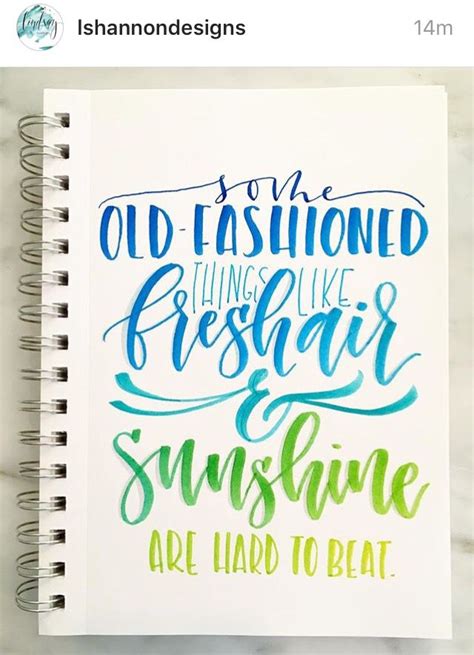 lshannondesigns
14m
lindsay
some
OLD-FASHIONED
THINGS LIKE
fresh air
&
Sunshine
ARE HARD TO BEAT.